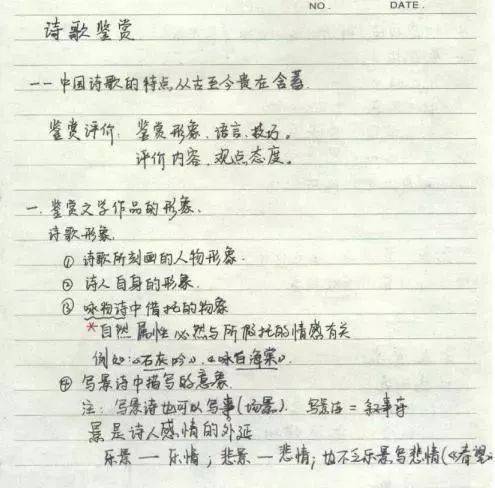 NO.
DATE.
诗歌鉴赏
-- 中国诗歌的特点,从古至今贵在含蓄.
鉴赏评价: 鉴赏形象、语言、技巧。
评价内容、观点态度。
一. 鉴赏文学作品的形象.
诗歌形象.
① 诗歌所刻画的人物形象.
② 诗人自身的形象.
③ 咏物诗中借托的物象
*自然属性必然与所假托的情感有关
例如:《石灰吟》、《咏白海棠》.
④ 写景诗中描写的意象.
注: 写景诗也可以写事(场景). 写景诗=叙事诗
景是诗人感情的外延
乐景 — 乐情; 悲景 — 悲情; 也不乏乐景写悲情(《春望》